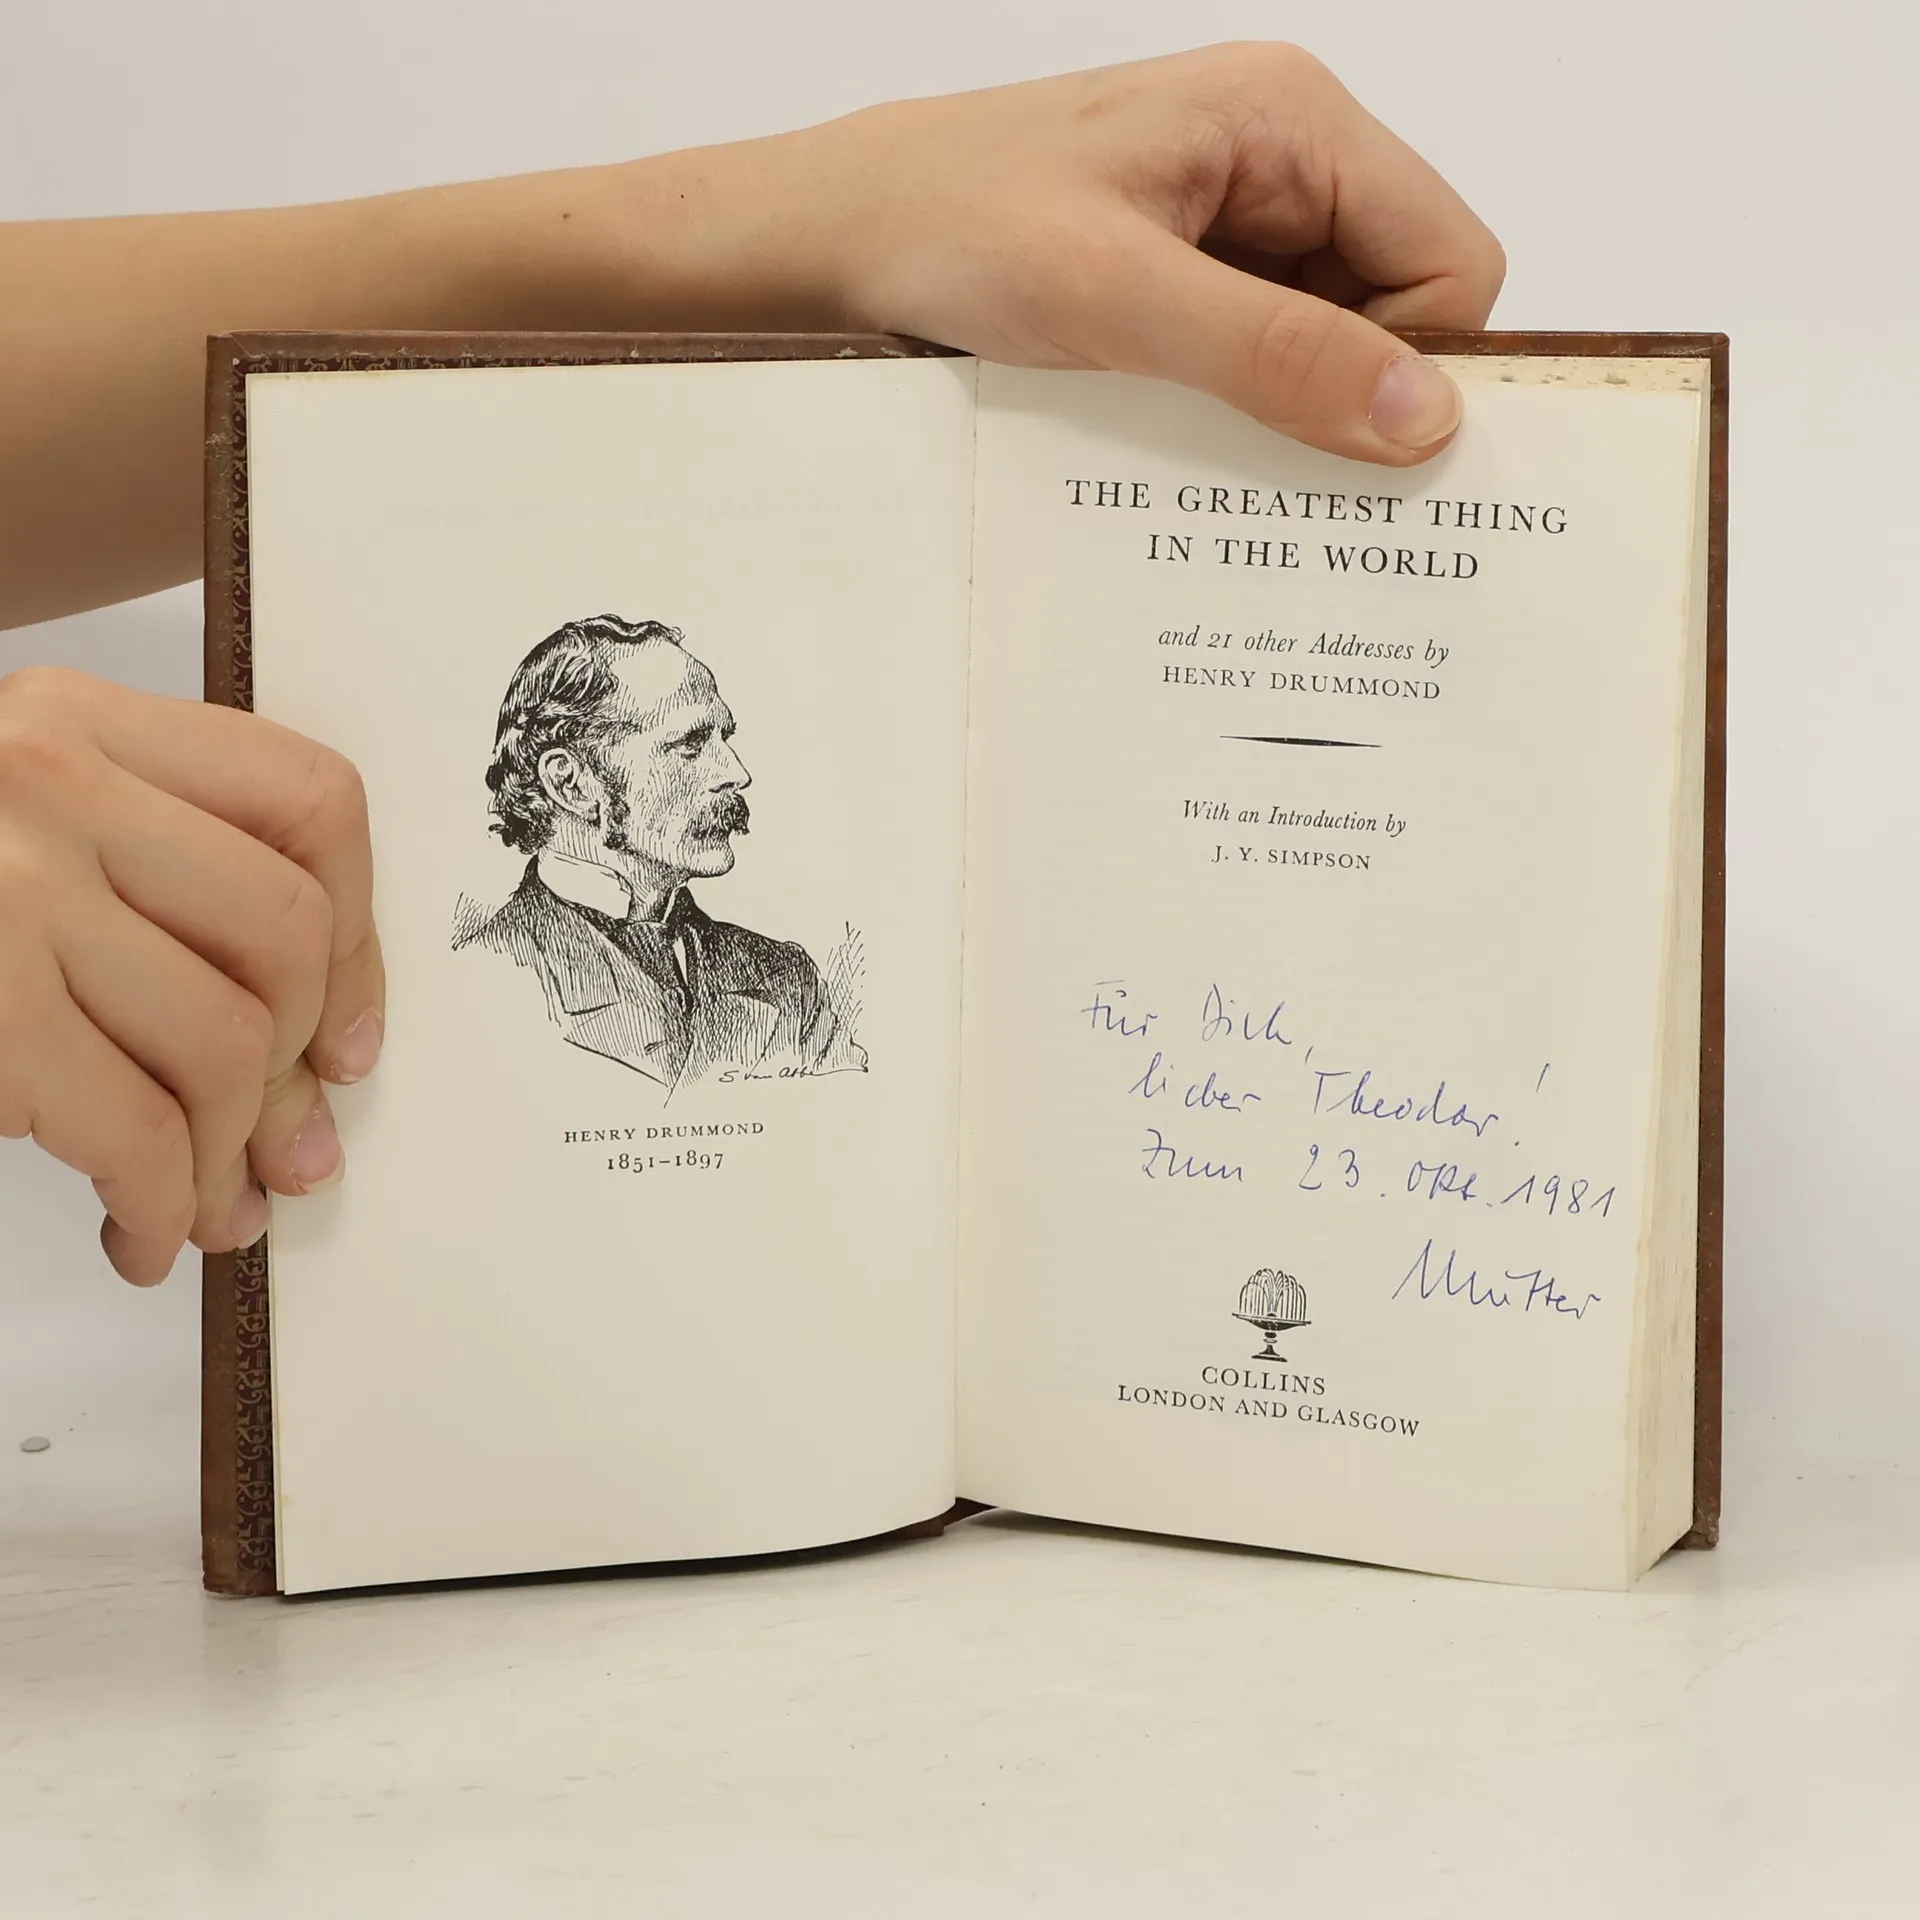 S van Abbé
HENRY DRUMMOND
1851–1897
THE GREATEST THING
IN THE WORLD
and 21 other Addresses by
HENRY DRUMMOND
With an Introduction by
J. Y. SIMPSON
Für Dich,
lieber Theodor!
Zum 23. Okt. 1981
Mutter
COLLINS
LONDON AND GLASGOW